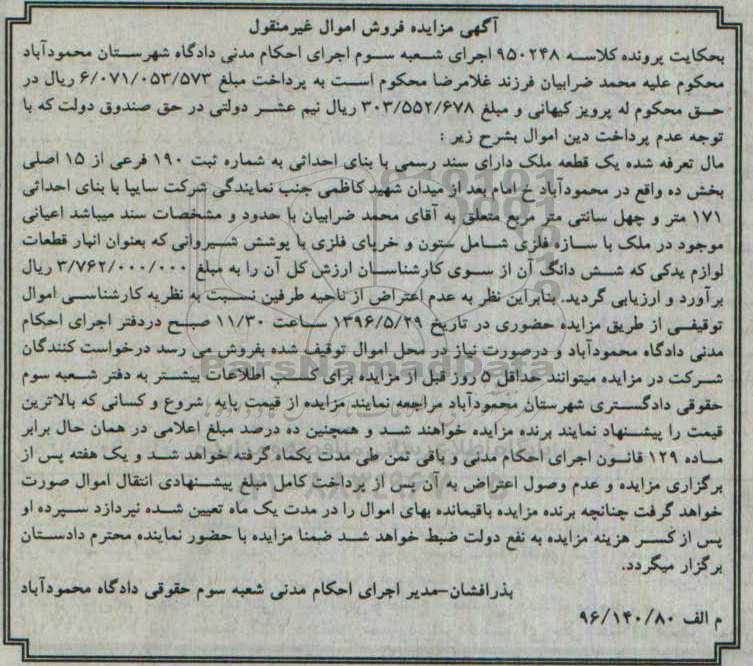 آگهی مزایده فروش اموال غیرمنقول
بحکایت پرونده کلاسه ۹۵۰۲۴۸ اجرای شعبه سوم اجرای احکام مدنی دادگاه شهرستان محمودآباد
محکوم علیه محمد ضرابیان فرزند غلامرضا محکوم است به پرداخت مبلغ ۶/۰۷۱/۰۵۳/۵۷۳ ریال در
حق محکوم له پرویز کیهانی و مبلغ ۳۰۳/۵۵۲/۶۷۸ ریال نیم عشر دولتی در حق صندوق دولت که با
توجه عدم پرداخت دین اموال بشرح زیر :
مال تعرفه شده یک قطعه ملک دارای سند رسمی با بنای احداثی به شماره ثبت ۱۹۰ فرعی از ۱۵ اصلی
بخش ده واقع در محمودآباد خ امام بعد از میدان شهید کاظمی جنب نمایندگی شرکت سایپا با بنای احداثی
۱۷۱ متر و چهل سانتی متر مربع متعلق به آقای محمد ضرابیان با حدود و مشخصات سند میباشد اعیانی
موجود در ملک با سازه فلزی شامل ستون و خرپای فلزی با پوشش شیروانی که بعنوان انبار قطعات
لوازم یدکی که شش دانگ آن از سوی کارشناسان ارزش کل آن را به مبلغ ۳/۷۶۲/۰۰۰/۰۰۰ ریال
برآورد و ارزیابی گردید. بنابراین نظر به عدم اعتراض از ناحیه طرفین نسبت به نظریه کارشناسی اموال
توقیفی از طریق مزایده حضوری در تاریخ ۱۳۹۶/۵/۲۹ ساعت ۱۱/۳۰ صبح دردفتر اجرای احکام
مدنی دادگاه محمودآباد و درصورت نیاز در محل اموال توقیف شده بفروش می رسد درخواست کنندگان
شرکت در مزایده میتوانند حداقل ۵ روز قبل از مزایده برای کسب اطلاعات بیشتر به دفتر شعبه سوم
حقوقی دادگستری شهرستان محمودآباد مراجعه نمایند مزایده از قیمت پایه شروع و کسانی که بالاترین
قیمت را پیشنهاد نمایند برنده مزایده خواهند شد و همچنین ده درصد مبلغ اعلامی در همان حال برابر
ماده ۱۲۹ قانون اجرای احکام مدنی و باقی ثمن طی مدت یکماه گرفته خواهد شد و یک هفته پس از
برگزاری مزایده و عدم وصول اعتراض به آن پس از پرداخت کامل مبلغ پیشنهادی انتقال اموال صورت
خواهد گرفت چنانچه برنده مزایده باقیمانده بهای اموال را در مدت یک ماه تعیین شده نپردازد سپرده او
پس از کسر هزینه مزایده به نفع دولت ضبط خواهد شد ضمنا مزایده با حضور نماینده محترم دادستان
برگزار میگردد.
بذرافشان-مدیر اجرای احکام مدنی شعبه سوم حقوقی دادگاه محمودآباد
م الف ۹۶/۱۴۰/۸۰
ParsNamadData